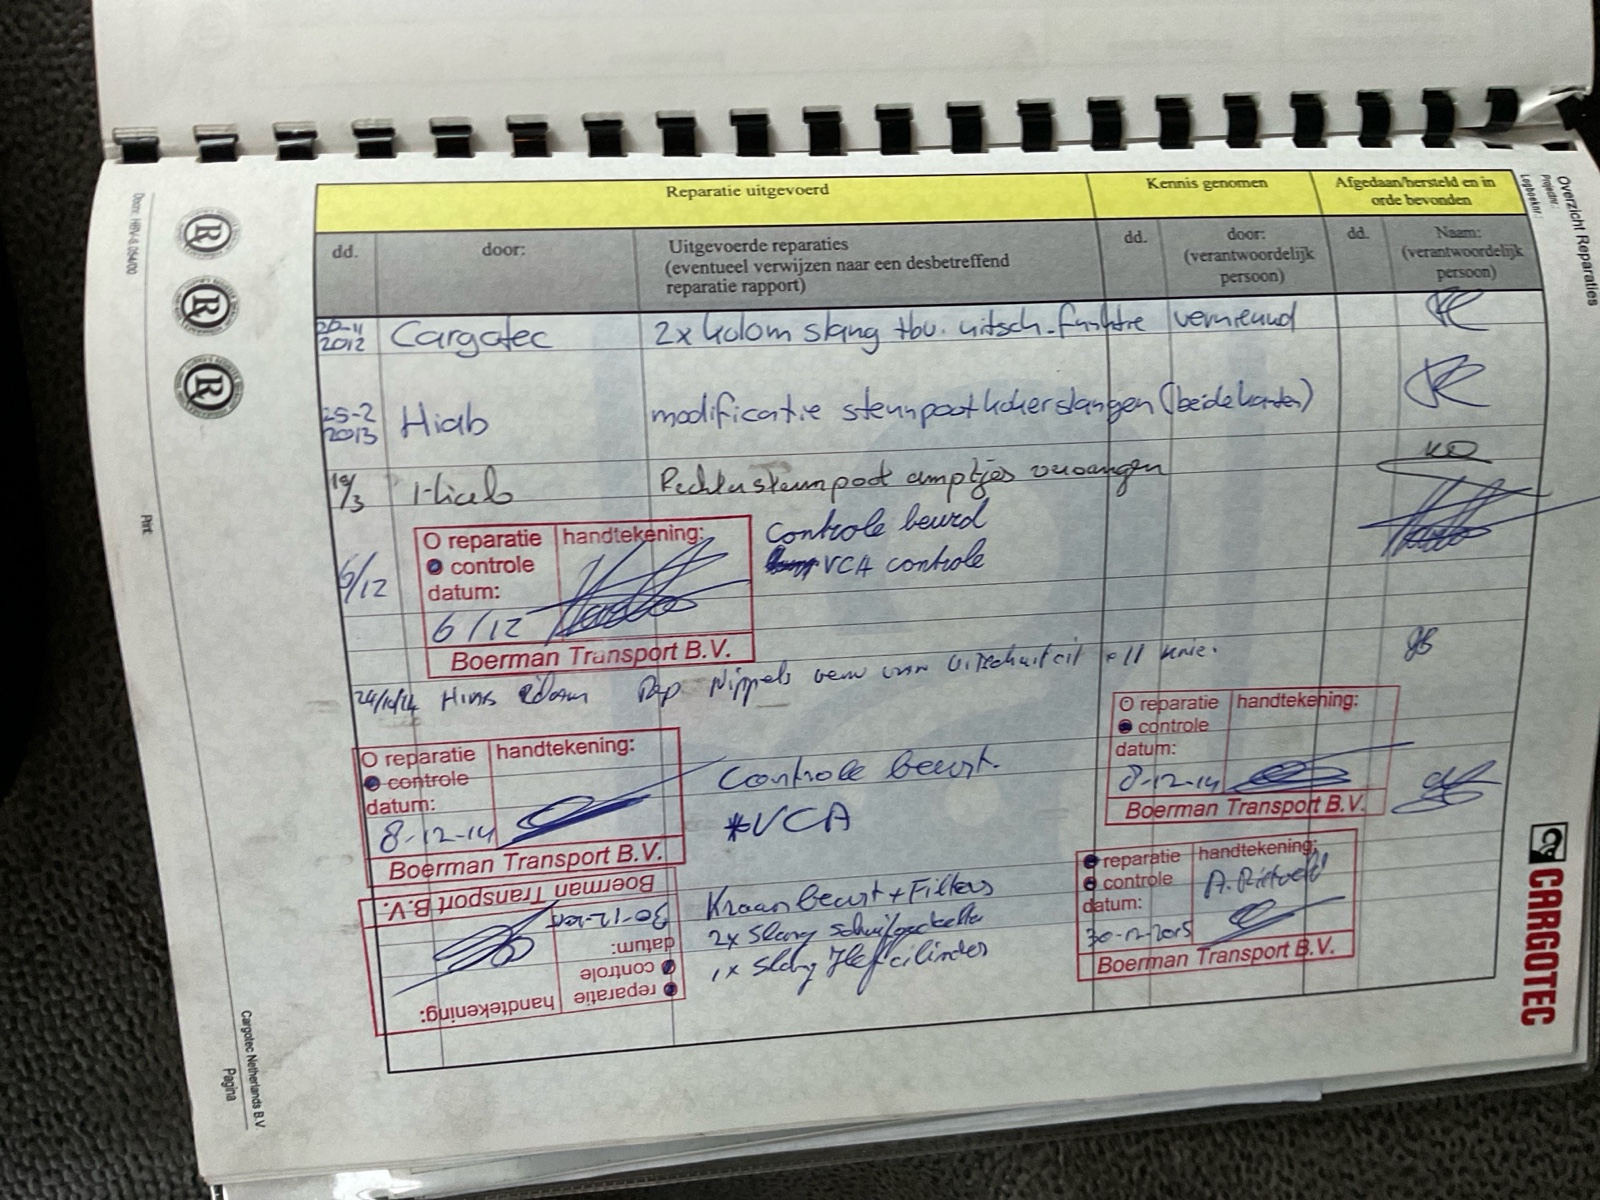 Overzicht Reparaties
Projectnr.:
Logboeknr.:
Reparatie uitgevoerd
Kennis genomen
Afgedaan/hersteld en in
orde bevonden
dd.
door:
Uitgevoerde reparaties
(eventueel verwijzen naar een desbetreffend
reparatie rapport)
dd.
door:
(verantwoordelijk
persoon)
dd.
Naam:
(verantwoordelijk
persoon)
2012 Cargotec 2x kolom slang tbv. uitsch. functie vernieuwd
25-2
2013 Hiab modificatie steunpootkokerslangen (beidekanten)
19/3 Hiab Rechter steunpoot vervangen
6/12
O reparatie
controle
datum:
6/12
handtekening:
Boerman Transport B.V.
Controle beurd
VCA controle
Rep Nippels
O reparatie
controle
datum:
8-12-14
handtekening:
Boerman Transport B.V.
Controle beurt.
*VCA
O reparatie
controle
datum:
8-12-14
handtekening:
Boerman Transport B.V.
reparatie
controle
datum:
30-12-2015
handtekening:
Boerman Transport B.V.
Kraan beurt + Filters
2x Slang
1x Slang Hefcilinder
reparatie
controle
datum:
30-12-2015
handtekening:
A. Rietveld
Boerman Transport B.V.
CARGOTEC
R
R
R
Docnr. HRV-6.054/00
Print:
Cargotec Netherlands B.V.
Pagina